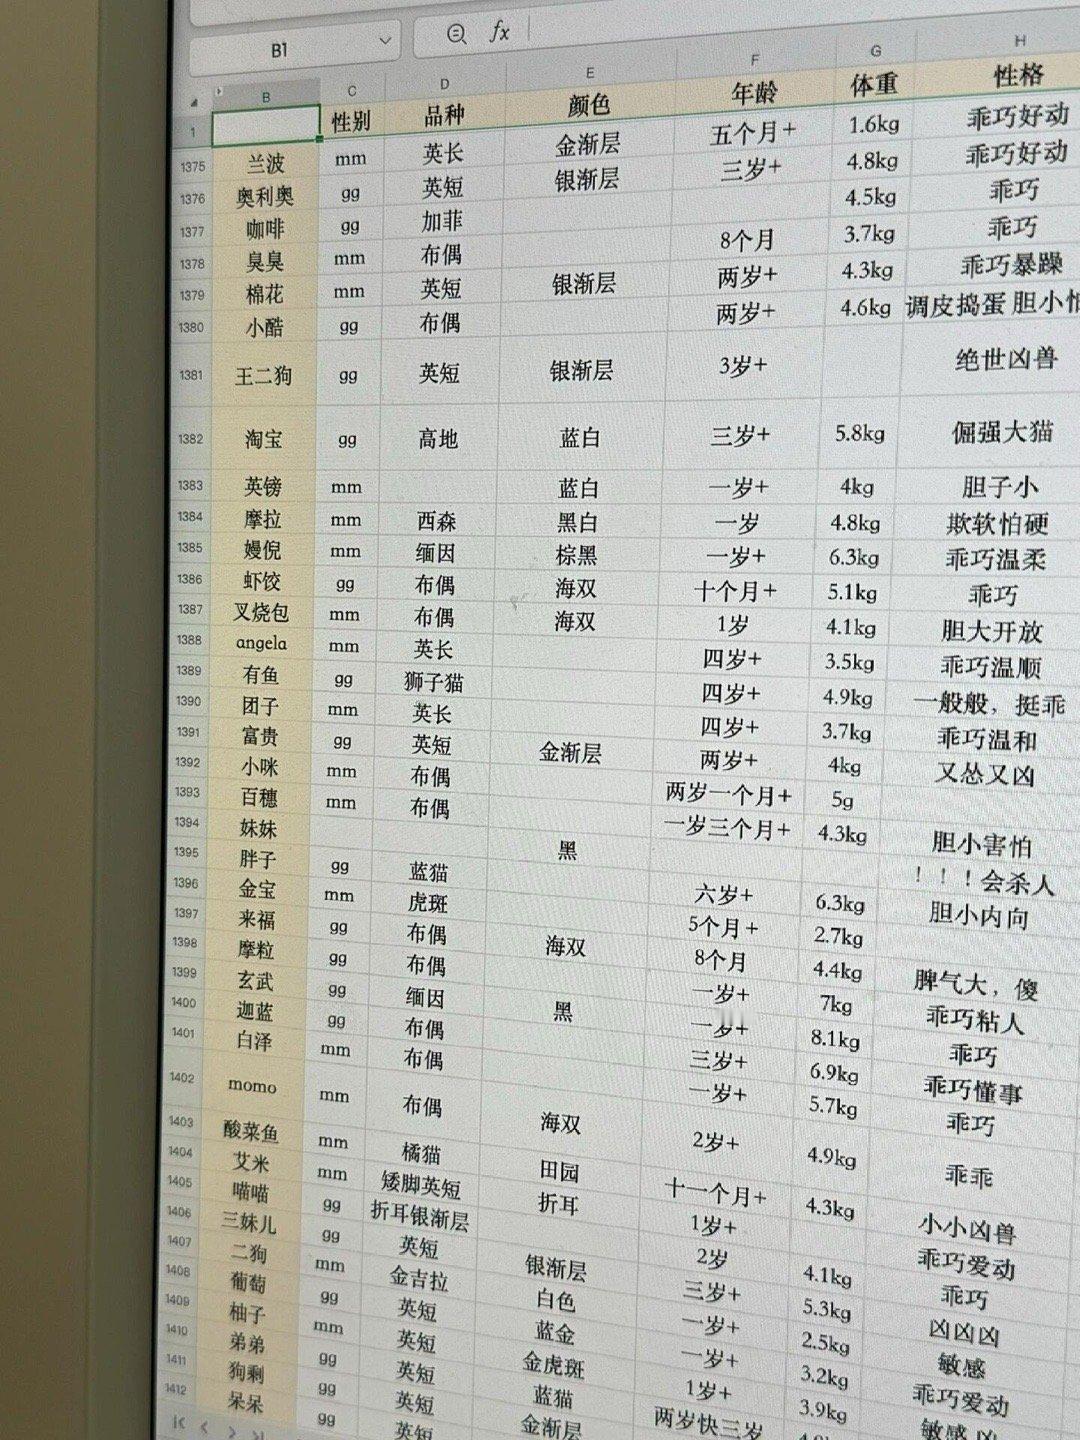 B1 fx
B C D E F G H
1 性别 品种 颜色 年龄 体重 性格
1375 兰波 mm 英长 金渐层 五个月+ 1.6kg 乖巧好动
1376 奥利奥 gg 英短 银渐层 三岁+ 4.8kg 乖巧好动
1377 咖啡 gg 加菲 4.5kg 乖巧
1378 臭臭 mm 布偶 8个月 3.7kg 乖巧
1379 棉花 mm 英短 银渐层 两岁+ 4.3kg 乖巧暴躁
1380 小酷 gg 布偶 两岁+ 4.6kg 调皮捣蛋 胆小
1381 王二狗 gg 英短 银渐层 3岁+ 绝世凶兽
1382 淘宝 gg 高地 蓝白 三岁+ 5.8kg 倔强大猫
1383 英镑 mm 蓝白 一岁+ 4kg 胆子小
1384 摩拉 mm 西森 黑白 一岁 4.8kg 欺软怕硬
1385 嫚倪 mm 缅因 棕黑 一岁+ 6.3kg 乖巧温柔
1386 虾饺 gg 布偶 海双 十个月+ 5.1kg 乖巧
1387 叉烧包 mm 布偶 海双 1岁 4.1kg 胆大开放
1388 angela mm 英长 四岁+ 3.5kg 乖巧温顺
1389 有鱼 gg 狮子猫 四岁+ 4.9kg 一般般，挺乖
1390 团子 mm 英长 四岁+ 3.7kg 乖巧温和
1391 富贵 gg 英短 金渐层 两岁+ 4kg 又怂又凶
1392 小咪 mm 布偶 两岁一个月+ 5g
1393 百穗 mm 布偶 一岁三个月+ 4.3kg 胆小害怕
1394 妹妹 黑 ！！！会杀人
1395 胖子 gg 蓝猫 六岁+ 6.3kg 胆小内向
1396 金宝 mm 虎斑 5个月+ 2.7kg
1397 来福 gg 布偶 海双 8个月 4.4kg 脾气大，傻
1398 摩粒 gg 布偶 一岁+ 7kg 乖巧粘人
1399 玄武 gg 缅因 黑 一岁+ 8.1kg 乖巧
1400 迦蓝 gg 布偶 三岁+ 6.9kg 乖巧懂事
1401 白泽 mm 布偶 一岁+ 5.7kg 乖巧
1402 momo mm 布偶 海双 2岁+ 4.9kg 乖乖
1403 酸菜鱼 mm 橘猫 田园 十一个月+ 4.3kg 小小凶兽
1404 艾米 mm 矮脚英短 折耳 1岁+ 乖巧爱动
1405 喵喵 gg 折耳银渐层 2岁 4.1kg 乖巧
1406 三妹儿 gg 英短 银渐层 三岁+ 5.3kg 凶凶凶
1407 二狗 mm 金吉拉 白色 一岁+ 2.5kg 敏感
1408 葡萄 gg 英短 蓝金 一岁+ 3.2kg 乖巧爱动
1409 柚子 mm 英短 金虎斑 1岁+ 3.9kg 敏感
1410 弟弟 gg 英短 蓝猫 两岁快三岁
1411 狗剩 gg 英短 金渐层
1412 呆呆 gg 英短